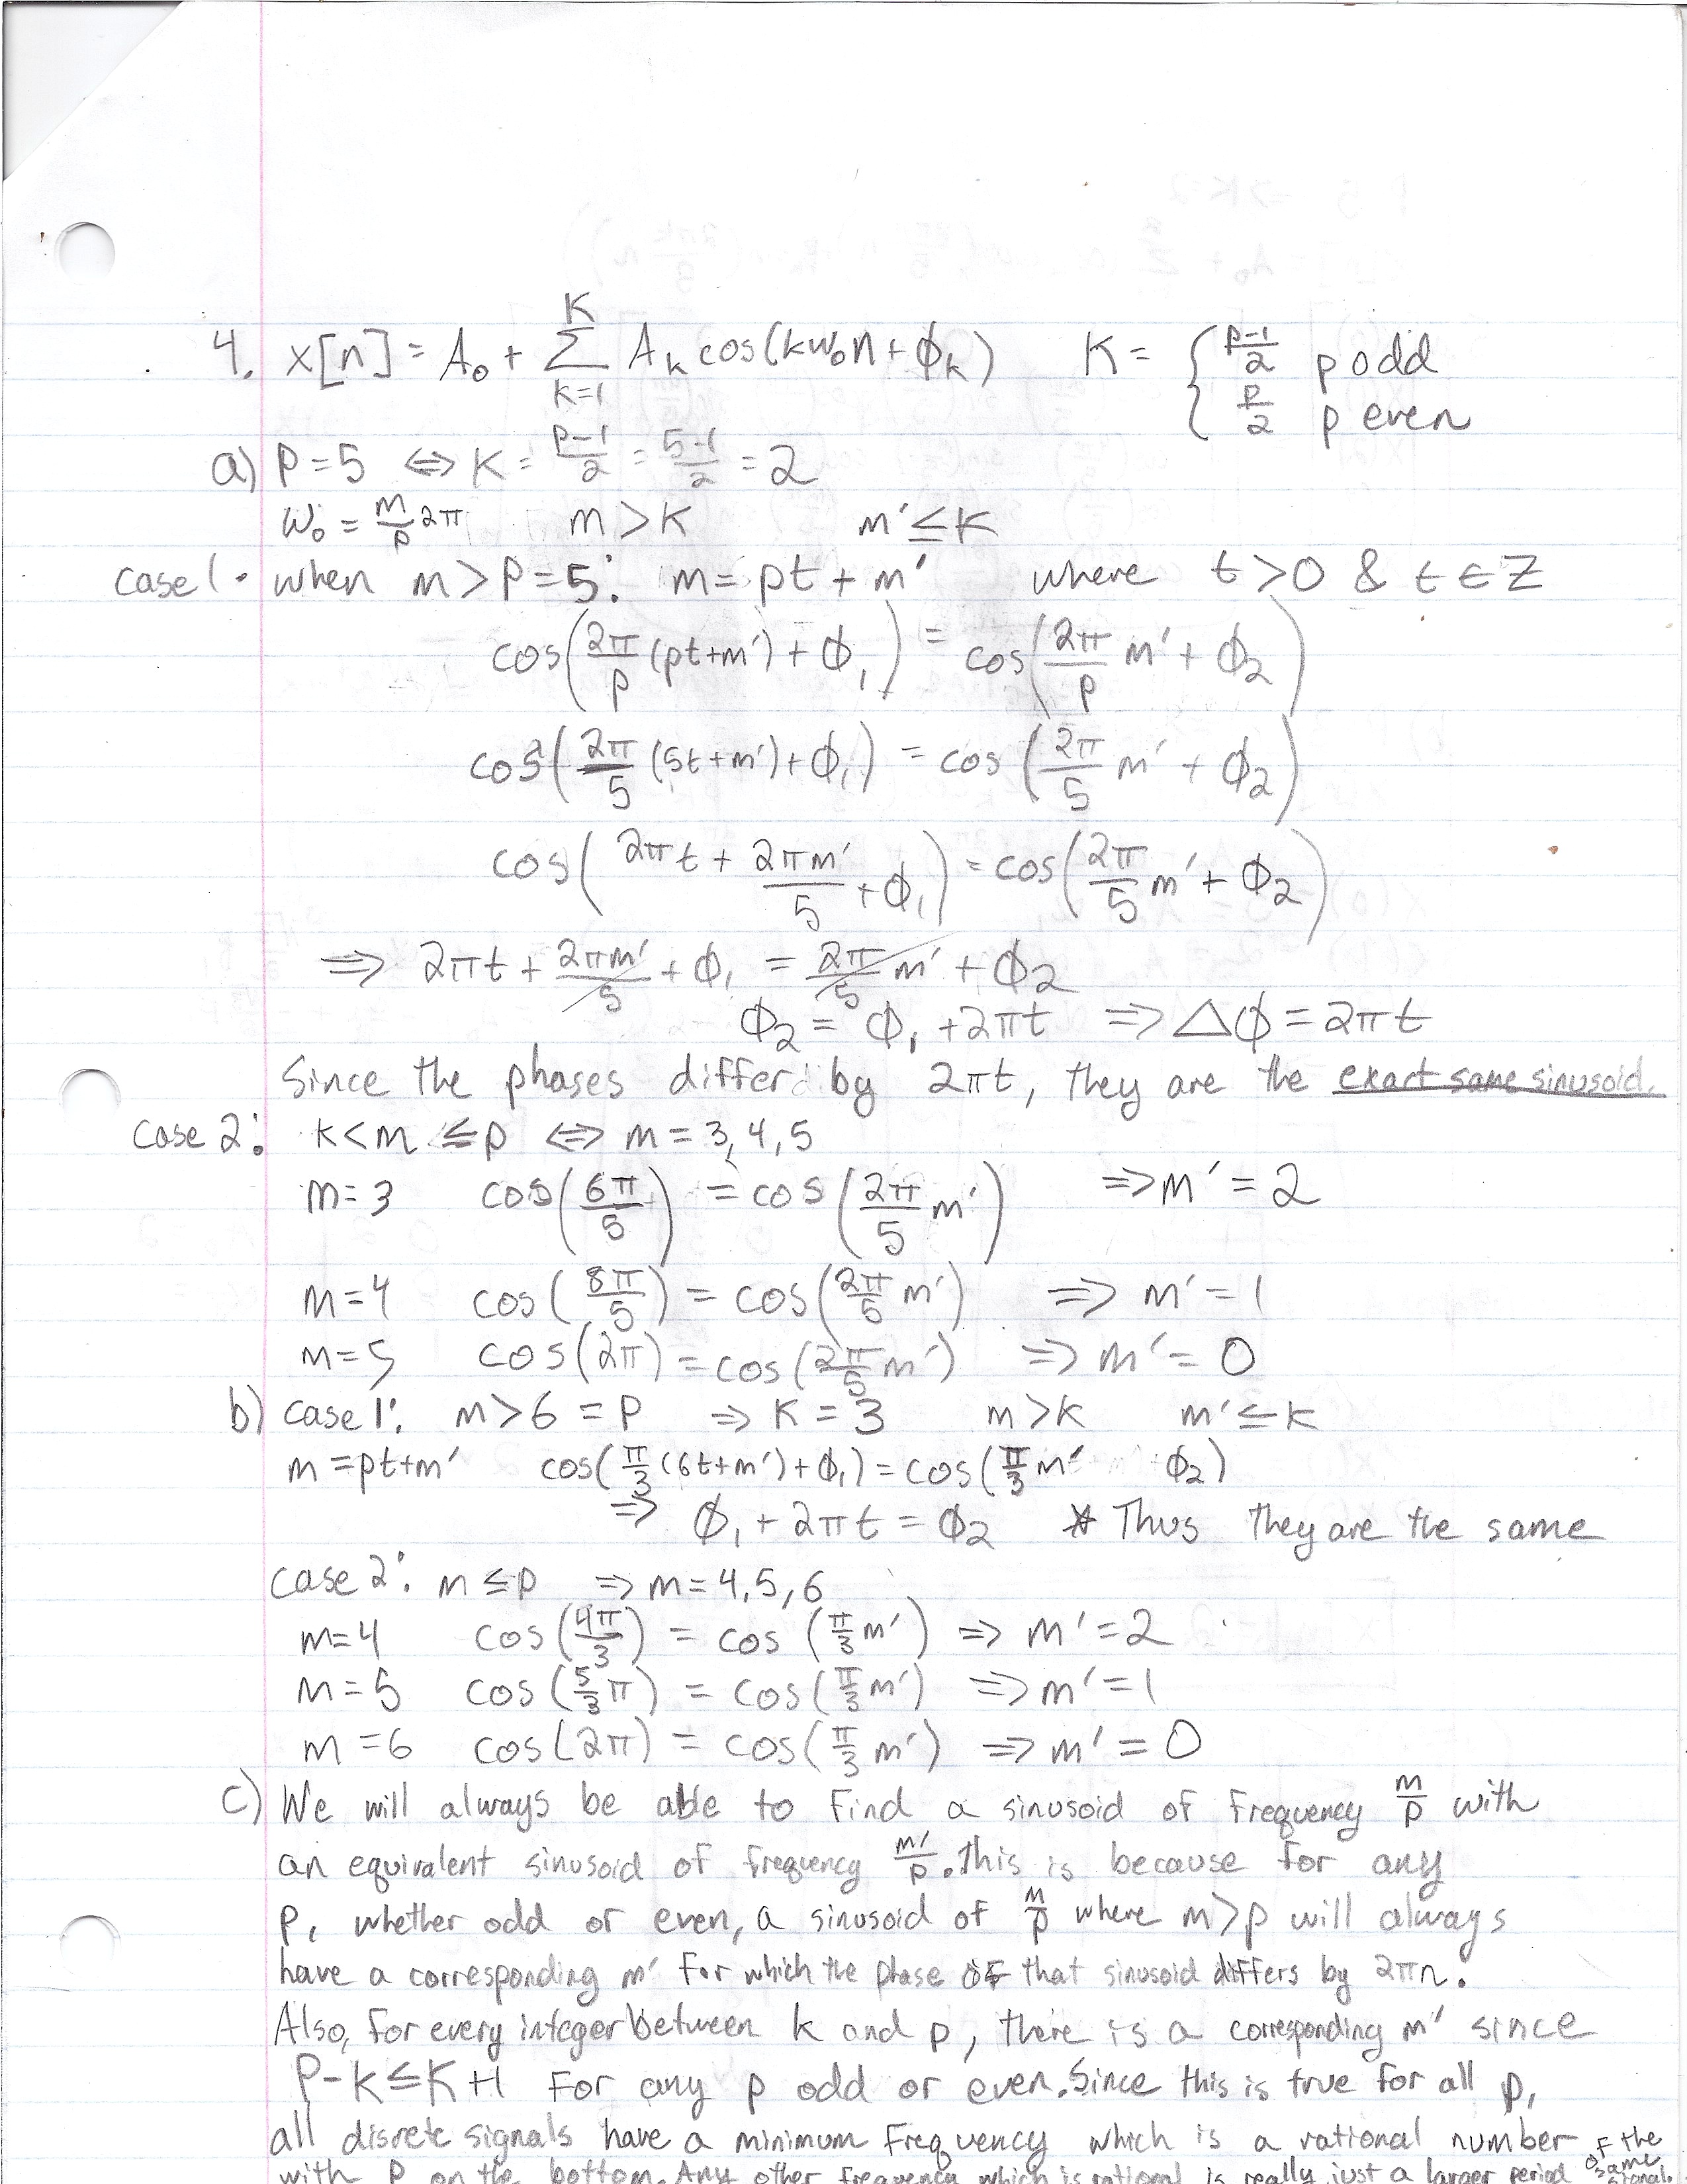 4. x[n] = A₀ + Σ_{k=1}^{K} A_k cos(kω₀n + ϕ_k)   K = { (p-1)/2 p odd
p/2 p even
a) P = 5 ⇔ K = (P-1)/2 = (5-1)/2 = 2
ω₀ = m/p 2π   m > K   m' ≤ K
case 1. when m > P = 5: m = pt + m' where t > 0 & t ∈ Z
cos(2π/p (pt+m') + ϕ₁) = cos(2π/p m' + ϕ₂)
cos(2π/5 (5t+m') + ϕ₁) = cos(2π/5 m' + ϕ₂)
cos(2πt + 2πm'/5 + ϕ₁) = cos(2π/5 m' + ϕ₂)
⇒ 2πt + 2πm'/5 + ϕ₁ = 2π/5 m' + ϕ₂
ϕ₂ = ϕ₁ + 2πt ⇒ Δϕ = 2πt
Since the phases differ by 2πt, they are the exact same sinusoid.
case 2: K < m ≤ p ⇔ m = 3, 4, 5
m = 3 cos(6π/5) = cos(2π/5 m') ⇒ m' = 2
m = 4 cos(8π/5) = cos(2π/5 m') ⇒ m' = 1
m = 5 cos(2π) = cos(2π/5 m') ⇒ m' = 0
b) case 1: m > 6 = P ⇒ K = 3   m > K   m' ≤ K
m = pt+m' cos(π/3 (6t+m') + ϕ₁) = cos(π/3 m' ϕ₂)
⇒ ϕ₁ + 2πt = ϕ₂ * Thus they are the same
case 2: m ≤ p ⇒ m = 4, 5, 6
m = 4 cos(4π/3) = cos(π/3 m') ⇒ m' = 2
m = 5 cos(5/3 π) = cos(π/3 m') ⇒ m' = 1
m = 6 cos(2π) = cos(π/3 m') ⇒ m' = 0
c) We will always be able to find a sinusoid of frequency m/p with
an equivalent sinusoid of frequency m'/p. This is because for any
p, whether odd or even, a sinusoid of m/p where m > p will always
have a corresponding m' for which the phase of that sinusoid differs by 2πn.
Also, for every integer between k and p, there is a corresponding m' since
P - k ≤ K + 1 For any p odd or even. Since this is true for all p,
all discrete signals have a minimum frequency which is a rational number of the
with P on the bottom. Any other frequency which is rational is really just a larger period same signal.